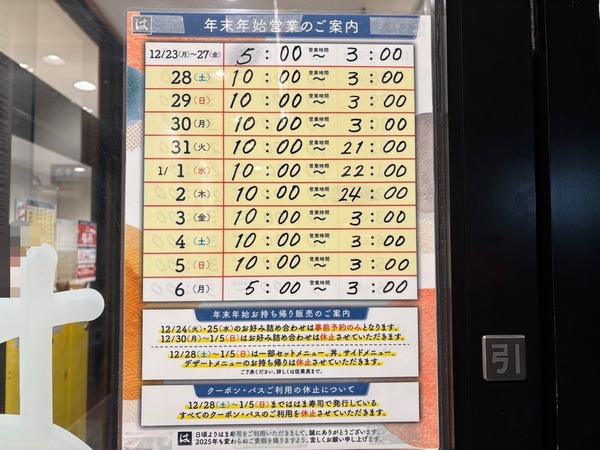 は 年末年始営業のご案内
12/23(月)~27(金) 5:00 営業時間 ~ 3:00
28(土) 10:00 営業時間 ~ 3:00
29(日) 10:00 営業時間 ~ 3:00
30(月) 10:00 営業時間 ~ 3:00
31(火) 10:00 営業時間 ~ 21:00
1/1(水) 10:00 営業時間 ~ 22:00
2(木) 10:00 営業時間 ~ 24:00
3(金) 10:00 営業時間 ~ 3:00
4(土) 10:00 営業時間 ~ 3:00
5(日) 10:00 営業時間 ~ 3:00
6(月) 5:00 営業時間 ~ 3:00
年末年始お持ち帰り販売のご案内
12/24(火)・25(水)のお好み詰め合わせは事前予約のみとなります。
12/30(月)~1/5(日)はお好み詰め合わせは休止させていただきます。
12/28(土)~1/5(日)は一部セットメニュー、丼、サイドメニュー、
デザートメニューのお持ち帰りは休止させていただきます。
ご了承ください。詳しくは従業員まで。
クーポン・パスご利用の休止について
12/28(土)~1/5(日)まではま寿司で発行している
すべてのクーポン・パスのご利用を休止させていただきます。
は 日頃よりはま寿司をご利用いただきまして、誠にありがとうございます。
2025年も変わらぬご愛顧を賜りますよう、宜しくお願い申し上げます。
引